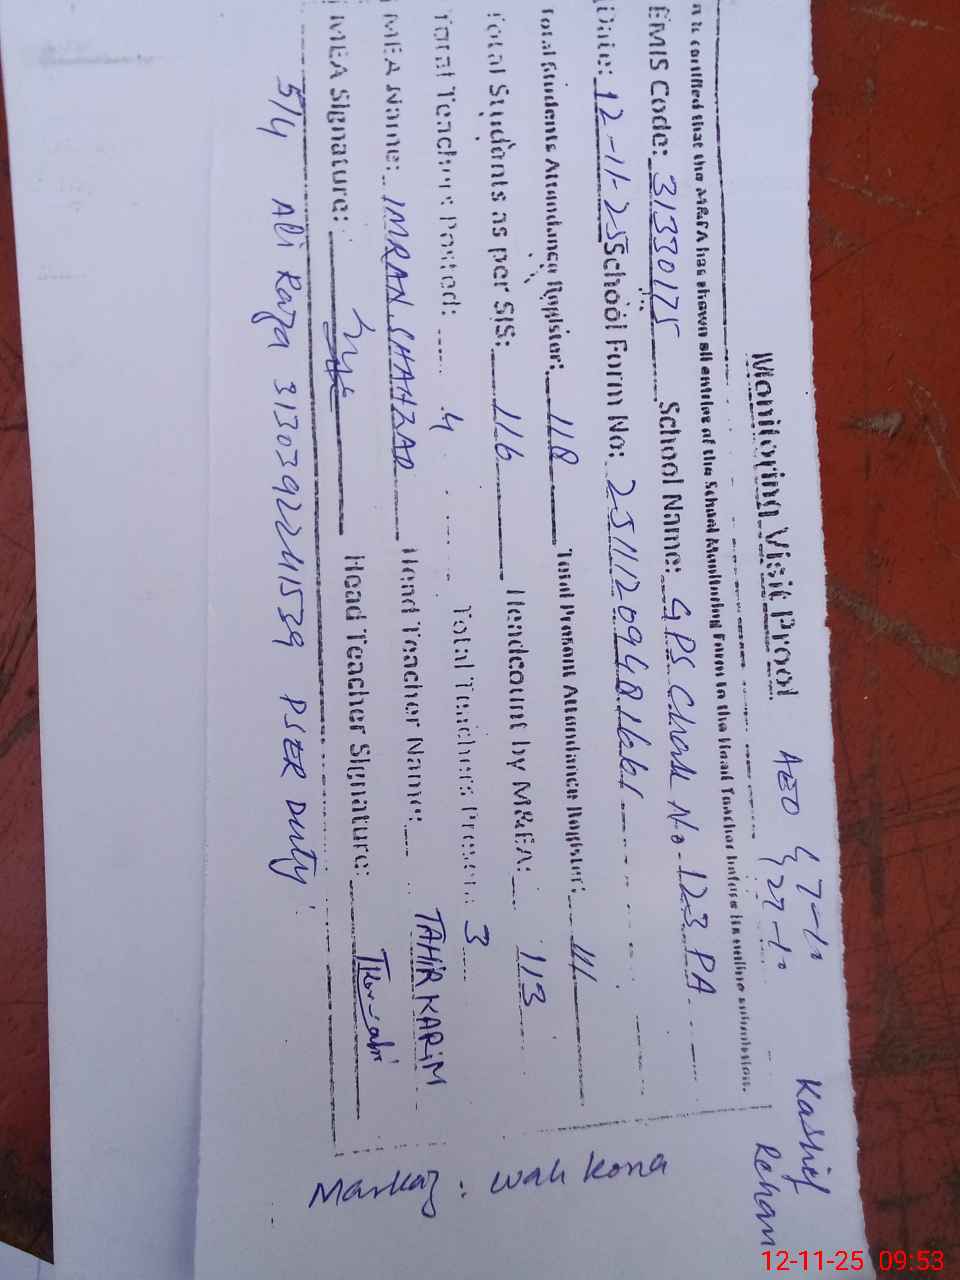 Monitoring Visit Proof
AEO { 7-10
{ 27-10
Kashif
Rehan
certified that the M&EA has shown all entries of the School Monitoring Form to the Head Teacher before its online submission.
EMIS Code: 31330175 School Name: GPS Chak No. 123 PA
Date: 12-11-25 School Form No: 251112094816661
Total Students Attendance Register: 118 Total Present Attendance Register: 111
Total Students as per SIS: 116 Headcount by M&EA: 113
Total Teachers Posted: 4 Total Teachers Present: 3
MEA Name: IMRAN SHAHZAD Head Teacher Name: TAHIR KARIM
MEA Signature: Head Teacher Signature:
Ali Raza 3130392241539 PSER Duty
Markaz:
12-11-25 09:53